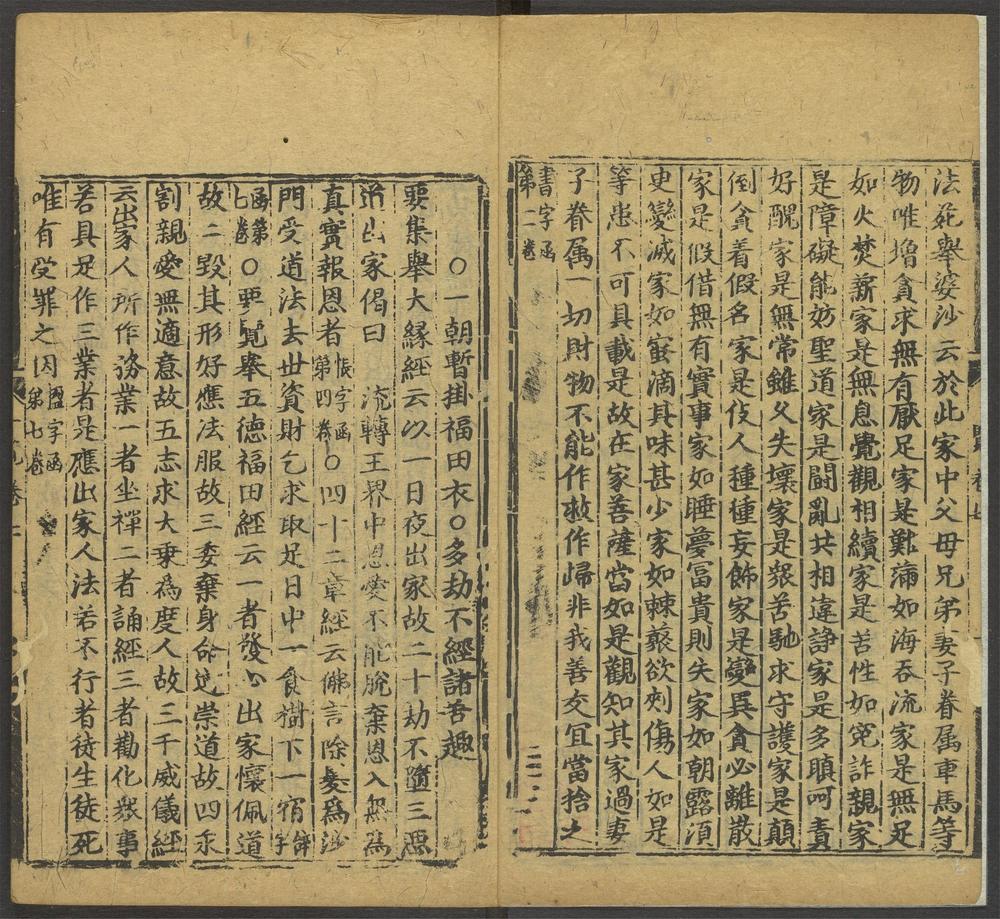 法苑舉婆沙云於此家中父母兄弟妻子眷属車馬等
物唯增貪求無有厭足家是難滿如海吞流家是無足
如火焚薪家是無息覺觀相續家是苦性如冤詐親家
是障礙能妨聖道家是鬪亂共相違諍家是多瞋呵責
好醜家是無常雖久失壞家是眾苦馳求守護家是顛
倒貪着假名家是伎人種種妄飾家是變異貪必離散
家是假借無有實事家如睡夢冨貴則失家如朝露湏
更變滅家如蜜滴其味甚少家如棘藂欲刺傷人如是
等患不可具載是故在家菩薩當如是觀知其家過妻
子眷属一切財物不能作救作歸非我善友冝當捨之
書字函
第二卷
○一朝暫掛福田衣○多劫不經諸苦趣
要集舉大縁經云以一日夜出家故二十劫不墮三惡
道出家偈曰 流轉王界中恩愛不能脫棄恩入無為
真實報恩者 悵字函第四卷 ○四十二章經云佛言除髮為沙
門受道法去世資財乞求取足日中一食樹下一宿 字
函第七卷 ○要覽舉五德福田經云一者發心出家懷佩道
故二毀其形好應法服故三委棄身命遵崇道故四永
割親愛無適意故五志求大乗為度人故三千威儀經
云出家人所作務業一者坐禪二者誦經三者勸化眾事
若具足作三業者是應出家人法若不行者徒生徒死
唯有受罪之因 字函第七卷